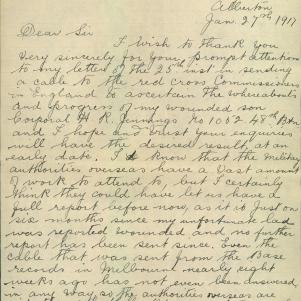 Alberton
Jan. 27th 1917
Dear Sir
I wish to thank you
very sincerely for your prompt attention
to my letter of the 25th inst in sending
a cable to the red cross Commissioners
in England to ascertain the whereabouts
and progress of my wounded son
Corporal H R. Jennings No 1052 48th Btn
and I hope and trust your enquiries
will have the desired result, at an
early date. I know that the Military
authorities overseas have a Vast amount
of work to attend to, but I certainly
think they could have let us have a
full report before now, as it is just on
six months since my unfortunate lad
was reported wounded and no further
report has been sent since. Even the
cable that was sent from the Base
records in Melbourne nearly eight
weeks ago has not even been answered
in any way, so the authorities overseas are